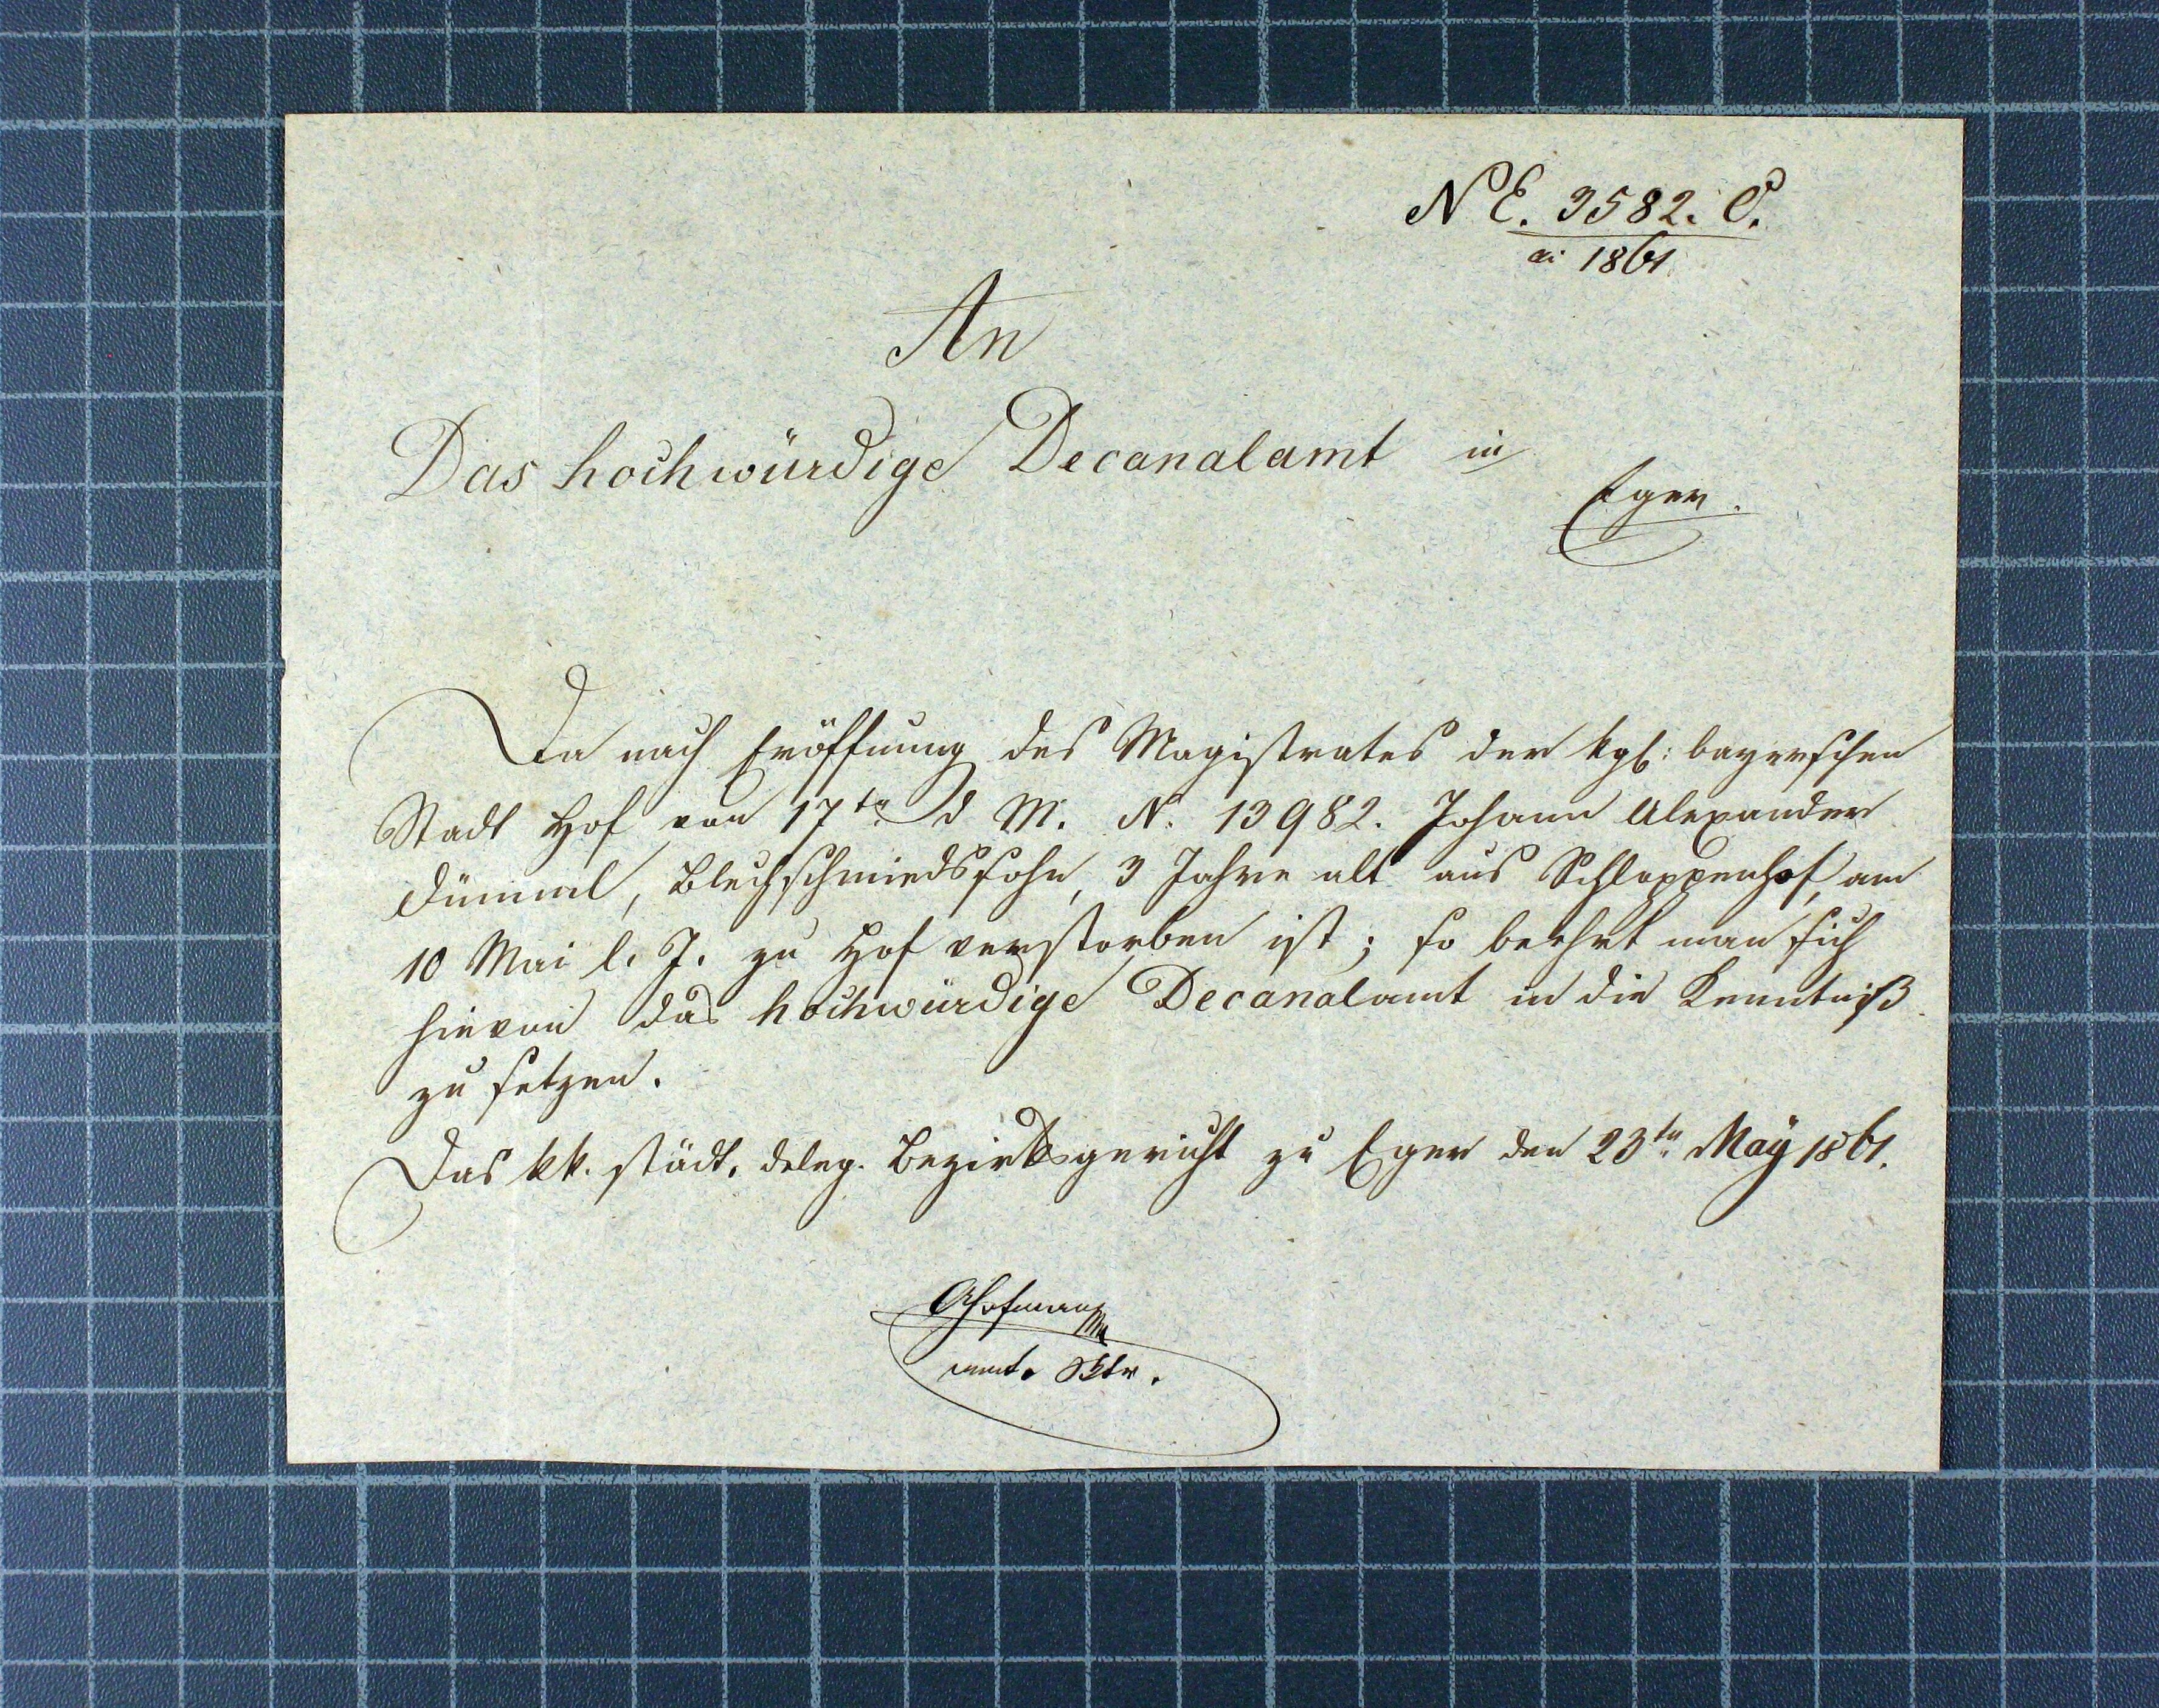 N E. 3582. C.
ai 1861
An
Das hochwürdige Decanalamt in
Eger.
Da nach Eröffnung des Magistrates der kgl: bayerschen
Stadt Hof von 17ten d M. N. 13982. Johann Alexander
Dümml, Blechschmiedssohn, 3 Jahre alt aus Schloppenhof, am
10 Mai l. J. zu Hof verstorben ist; so beehrt man sich
hievon das hochwürdige Decanalamt in die Kenntniß
zu setzen.
Das kk. städt. deleg. Bezirksgericht zu Eger den 23ten Maÿ 1861.